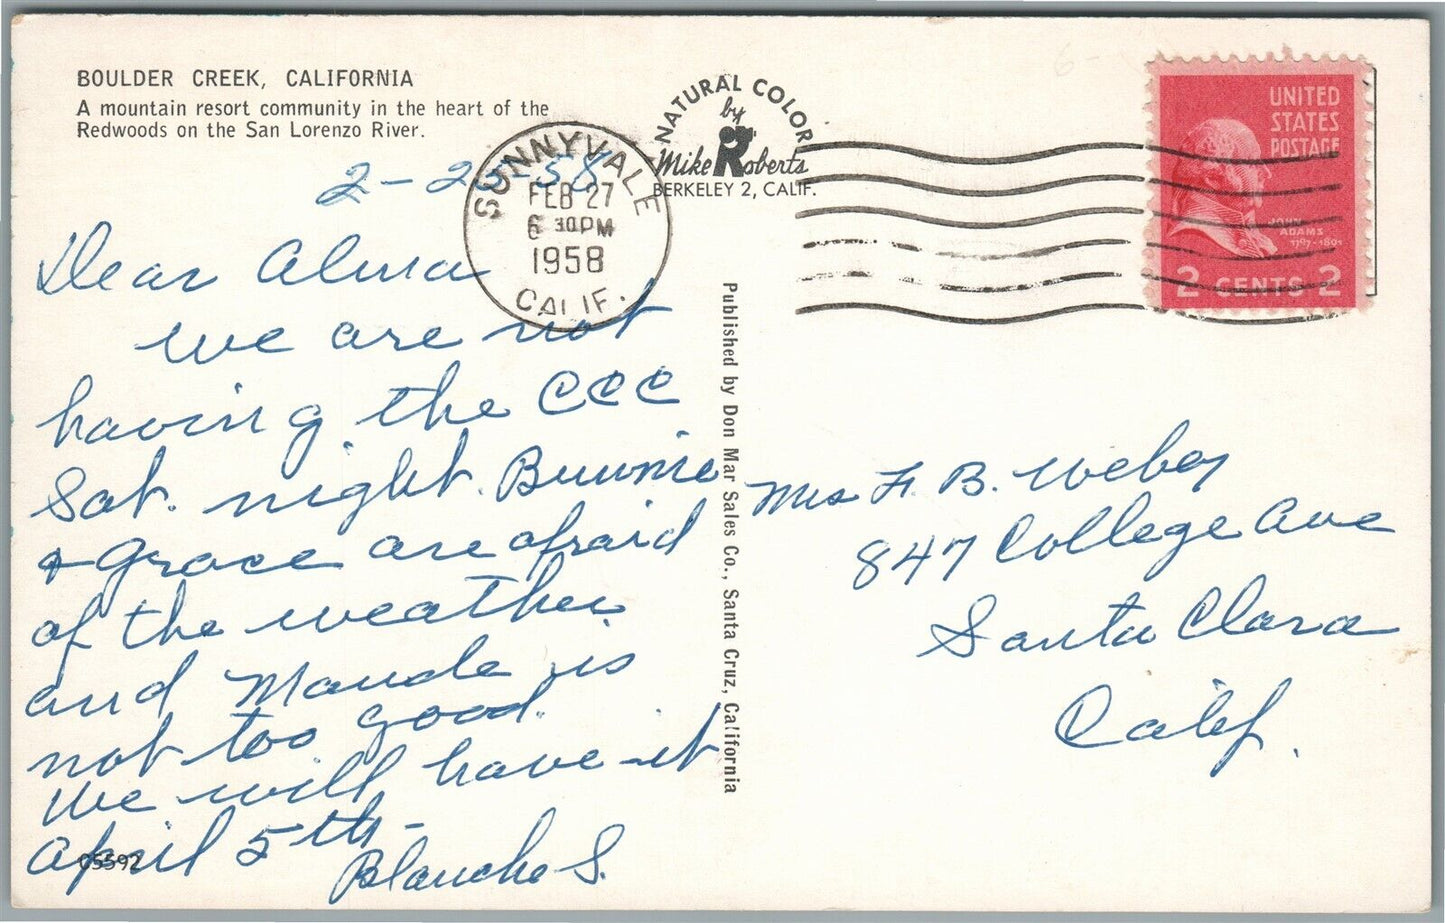 BOULDER CREEK, CALIFORNIA
A mountain resort community in the heart of the
Redwoods on the San Lorenzo River.
NATURAL COLOR
by
Mike Roberts
BERKELEY 2, CALIF.
SUNNYVALE
FEB 27
6 30 PM
1958
CALIF.
UNITED
STATES
POSTAGE
JOHN
ADAMS
1797-1801
2 CENTS 2
58
Dear Alma
we are not
having the CCC
Sat. night. Brownie
+ Grace are afraid
of the weather,
and Maude is
not too good.
We will have it
April 5th-
Blanche S.
C5592
Published by Don Mar Sales Co., Santa Cruz, California
Mrs F. B. Weber
847 College Ave
Santa Clara
Calif.